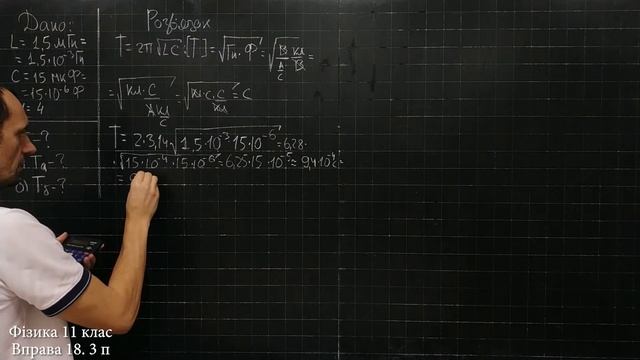 Дано:
L = 1,5 мГн =
= 1,5·10⁻³ Гн
C = 15 мкФ =
= 15·10⁻⁶ Ф
= 4
-?
Tа-?
б) Tб-?
Розв'язок
T = 2π√LC; [T] = √Гн·Ф = √(В/(А/с) · Кл/В) =
= √(Кл·с/(Кл/с)) = √(Кл·с·с/Кл) = с
T = 2·3,14√1,5·10⁻³·15·10⁻⁶ = 6,28·
·√15·10⁻⁴·15·10⁻⁶ = 6,28·15·10⁻⁵ ≈ 9,4·10⁻⁴ с =
=
Фізика 11 клас
Вправа 18. 3 п